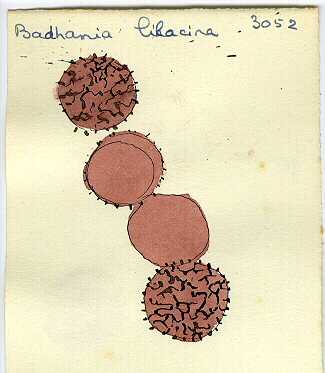 Badhamia lilacina 3052